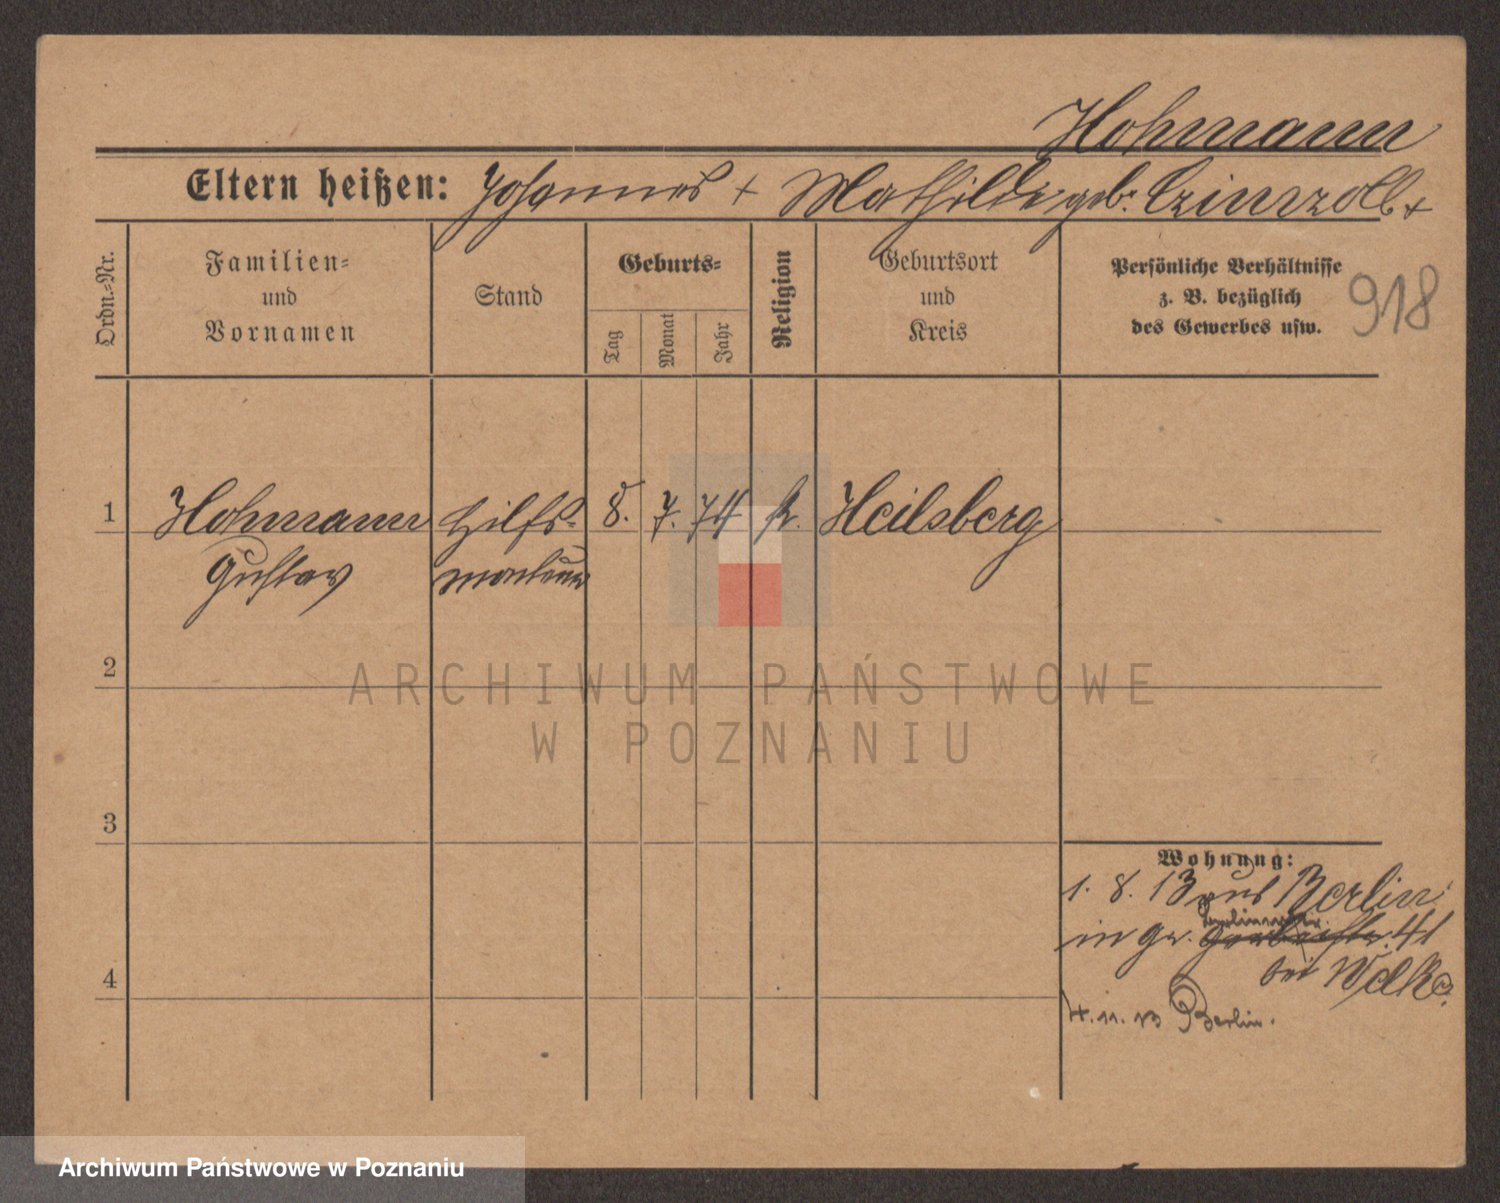 Hohmann
Eltern heißen: Johannes + Mathilde geb. Czinczoll +
Ordn.=Nr.
Familien= und Vornamen
Stand
Geburts=
Tag
Monat
Jahr
Religion
Geburtsort und Kreis
Persönliche Verhältnisse
z. B. bezüglich
des Gewerbes usw.
918
1 Hohmann Hilfs= 8. 7. 74 k. Heilsberg
Gustav monteur
2
3
4
Wohnung:
1. 8. 13 aus Berlin
in Gr. 41
bei Wolke
4. 11. 13 Berlin.
ARCHIWUM PAŃSTWOWE
W POZNANIU
Archiwum Państwowe w Poznaniu